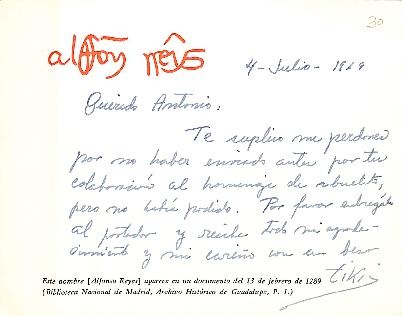 30
alffoñ rreyᵉs
4 - Julio - 1969
Querido Antonio:
Te suplico me perdones
por no haber enviado antes por tu
colaboración al homenaje de abuelito,
pero no había podido. Por favor entrégala
al portador y recibe todo mi agrade-
cimiento y mi cariño con un beso
Tikis
Este nombre [Alfonso Reyes] aparece en un documento del 13 de febrero de 1289
(Biblioteca Nacional de Madrid, Archivo Histórico de Guadalupe, P. 1.)